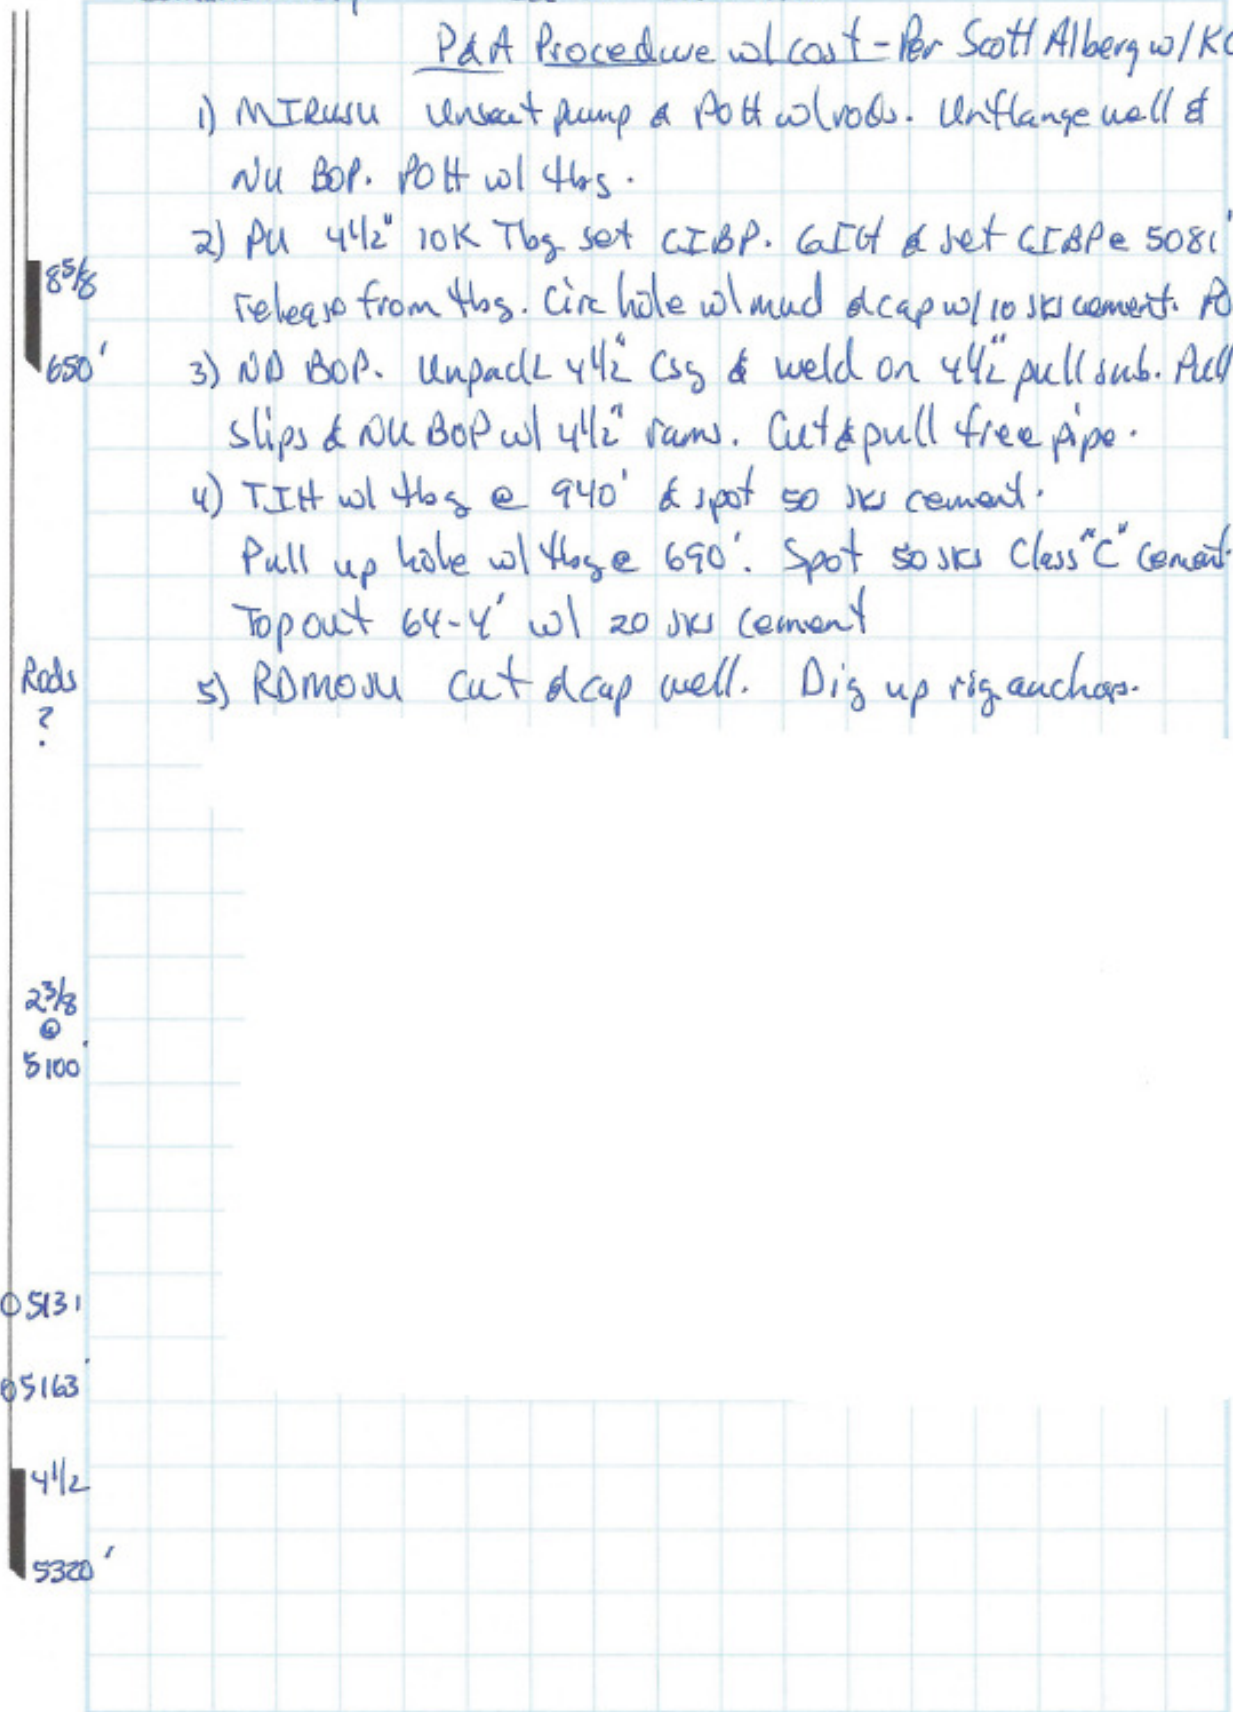 P&A Procedure w/ cost - Per Scott Alberg w/ KC
1) MIRUSU Unseat pump & POH w/ rods. Unflange well &
NU BOP. POH w/ tbg.
2) PU 4 1/2" 10K Tbg set CIBP. GIH & set CIBP @ 5081'
release from tbg. Circ hole w/ mud & cap w/ 10 sks cement. PO
3) ND BOP. Unpack 4 1/2" Csg & weld on 4 1/2" pull sub. Pull
slips & NU BOP w/ 4 1/2" rams. Cut & pull free pipe.
4) TIH w/ tbg @ 940' & spot 50 sks cement.
Pull up hole w/ tbg @ 690'. Spot 50 sks Class "C" Cement.
Top out 64-4' w/ 20 sks cement
5) RDMOSU Cut & cap well. Dig up rig anchors.
8 5/8
650'
Rods
?
2 3/8
@
5100'
5131
5163'
4 1/2
5320'